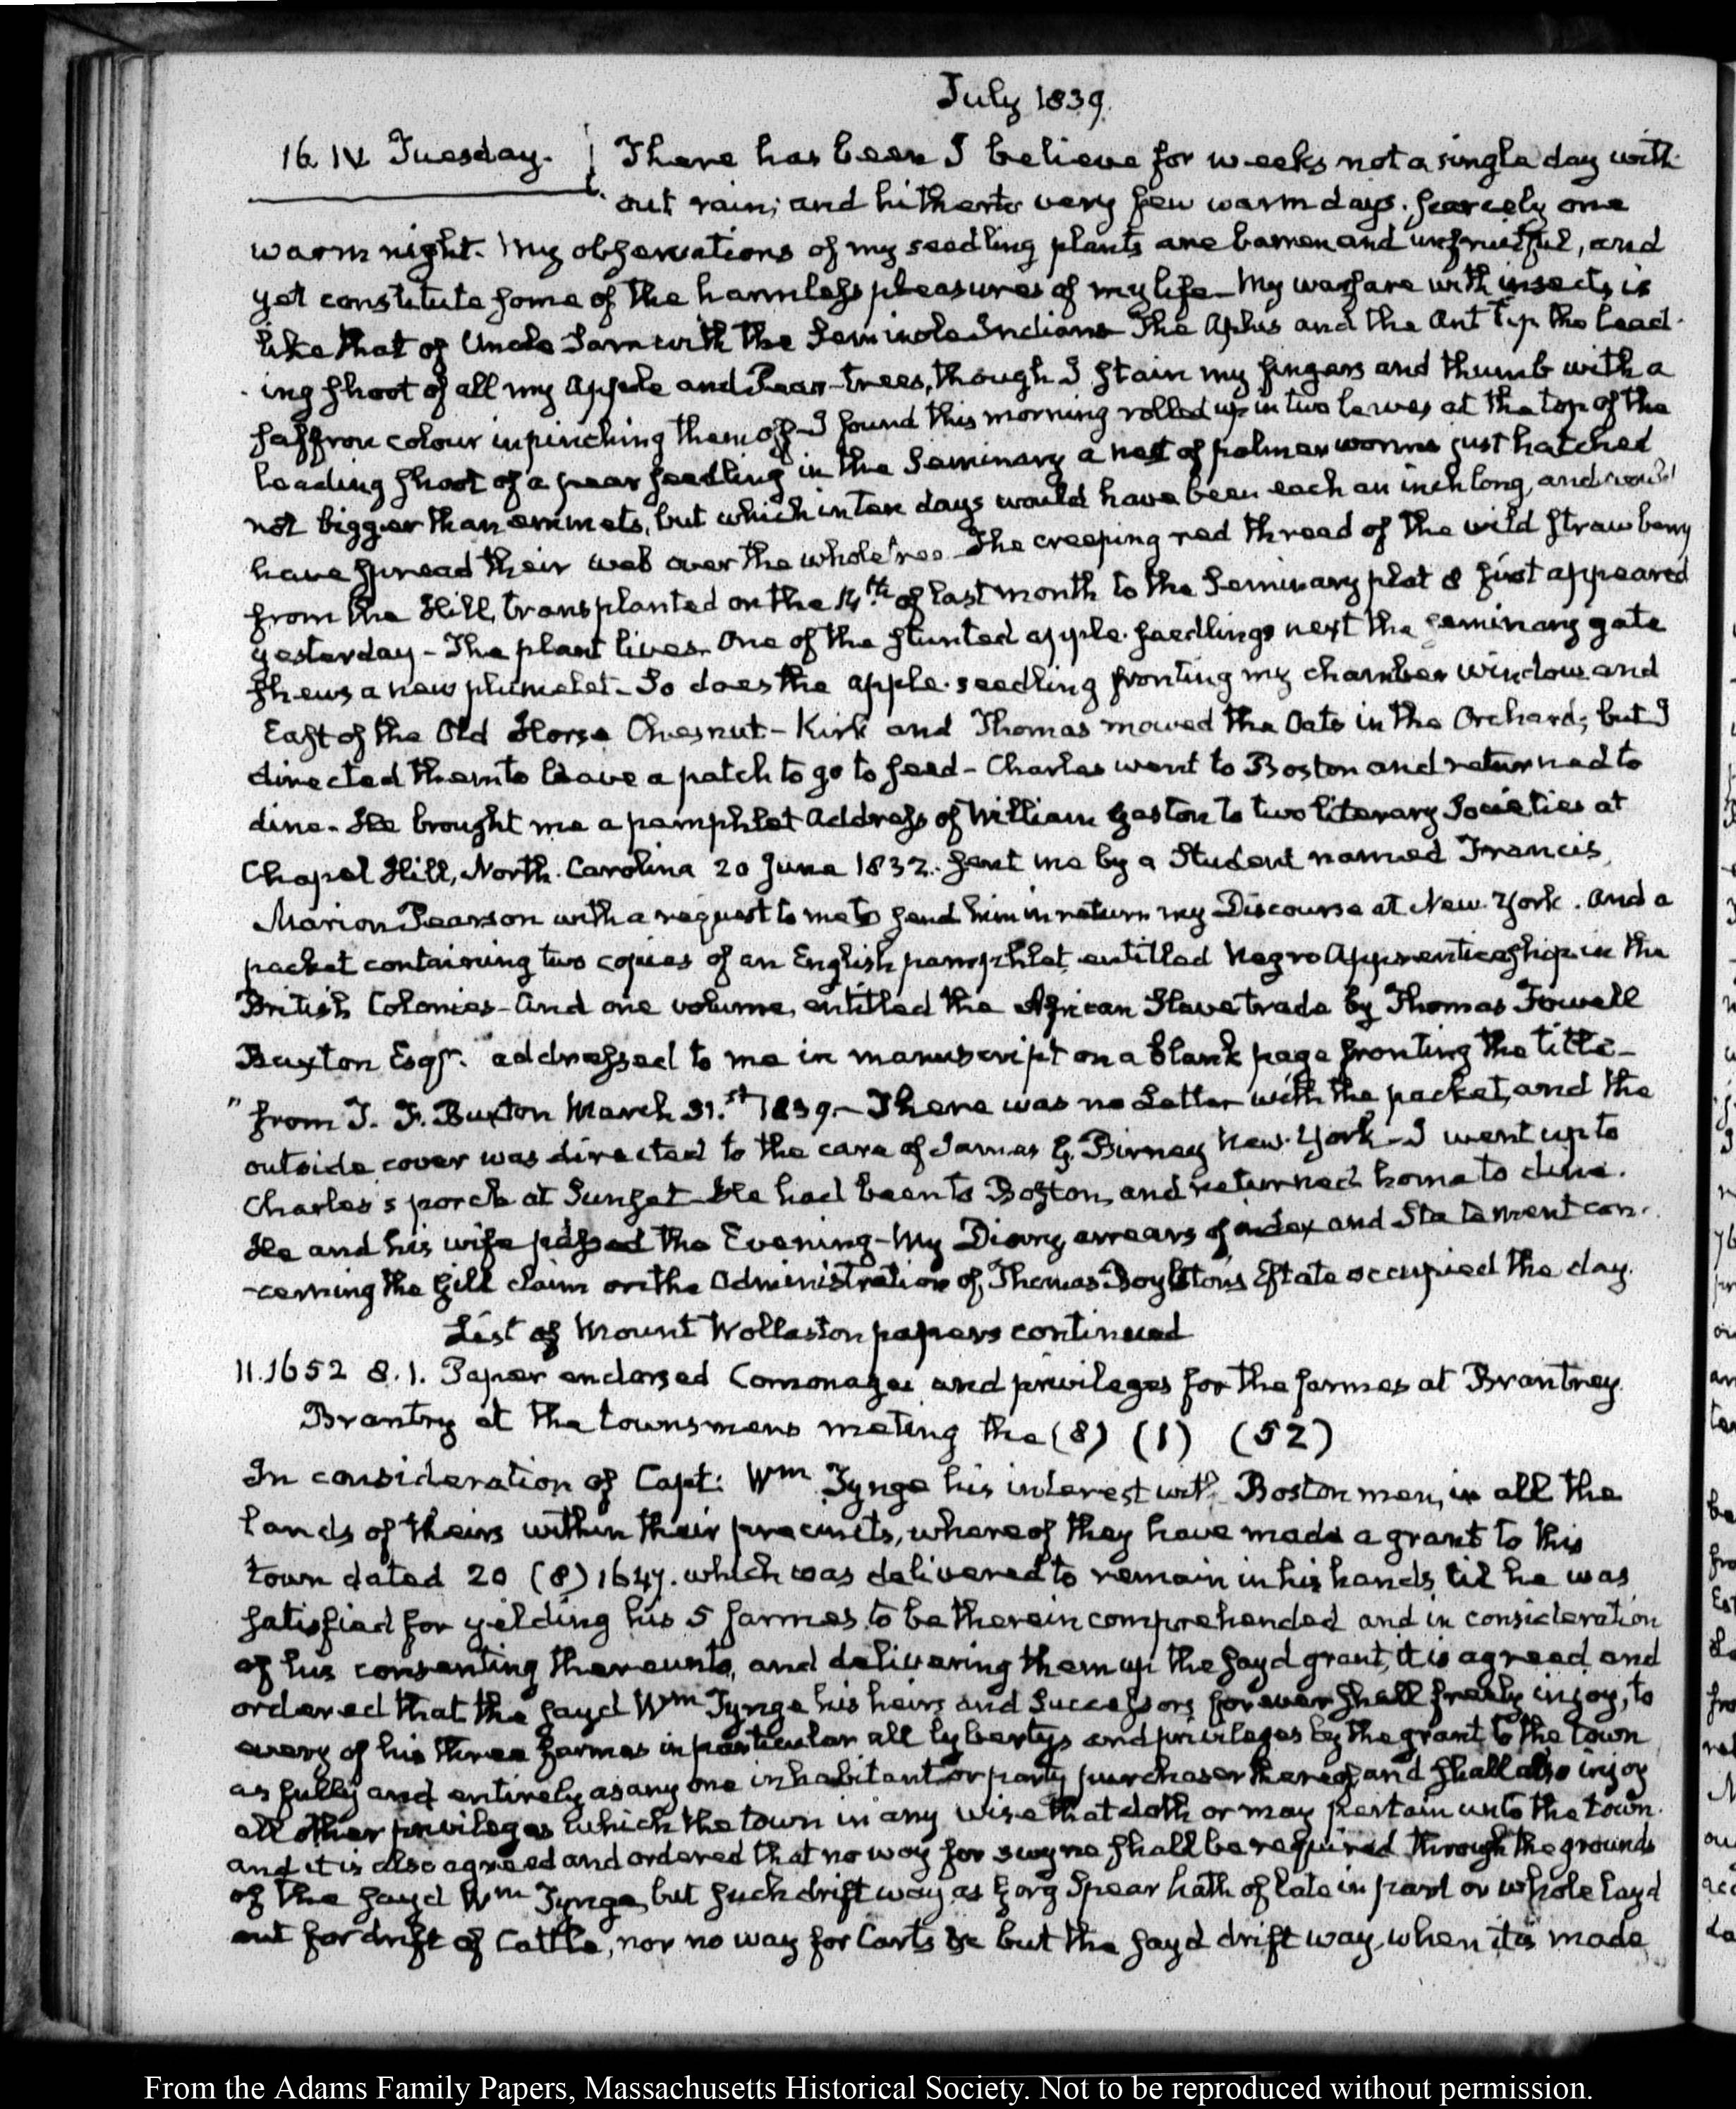 July 1839.
16. IV. Tuesday. There has been I believe for weeks not a single day with-
out rain; and hitherto very few warm days. Scarcely one
warm night. My observations of my seedling plants are barren and unfruitful, and
yet constitute some of the harmless pleasures of my life - My warfare with insects is
like that of Uncle Sam with the Seminole Indians The Aphis and the Ant tip the lead-
ing shoot of all my Apple and Pear-trees, though I stain my fingers and thumb with a
saffron colour in pinching them off - I found this morning rolled up in two leaves at the top of the
leading shoot of a pear seedling in the Seminary a nest of palmer worms just hatched
not bigger than emmets, but which in ten days would have been each an inch long, and would
have spread their web over the whole tree. The creeping red thread of the wild strawberry
from the Hill, transplanted on the 14th. of last month to the Seminary plat 8 first appeared
yesterday - The plant lives. One of the stunted apple-seedlings next the seminary gate
shews a new plumelet - So does the apple-seedling fronting my chamber window and
East of the Old Horse Chesnut - Kirk and Thomas mowed the Oats in the Orchard; but I
directed them to leave a patch to go to seed - Charles went to Boston and returned to
dine - He brought me a pamphlet Address of William Gaston to two literary Societies at
Chapel Hill, North-Carolina 20 June 1832. sent me by a Student named Francis
Marion Pearson with a request to me to send him in return my Discourse at New-York. And a
packet containing two copies of an English pamphlet entitled Negro Apprenticeship in the
British Colonies - And one volume, entitled the African Slave trade by Thomas Fowell
Buxton Esqr. addressed to me in manuscript on a blank page fronting the title -
"from T. F. Buxton March 31.st 1839 - There was no Letter with the packet, and the
outside cover was directed to the care of James G. Birney New-York - I went up to
Charles's porch at Sunset He had been to Boston, and returned home to dine.
He and his wife passed the Evening - My Diary, arrears of index and Statement con-
-cerning the Gill claim on the Administration of Thomas Boylston's Estate occupied the day.
List of Mount Wollaston papers continued
11. 1652 8. 1. Paper endorsed Comonages and privileges for the farmes at Brantrey.
Brantry at the townsmens meting the (8) (1) (52)
In consideration of Capt: Wm Tynge his interest with Boston men, in all the
lands of theirs within their precincts, whereof they have made a grant to this
town dated 20 (8) 1647. which was delivered to remain in his hands til he was
satisfied for yielding his 5 farmes to be therein comprehended and in consideration
of his consenting thereunto, and delivering them up the sayd grant, it is agreed and
ordered that the sayd Wm Tynge his heirs and Successors forever shall freely injoy, to
every of his three farmes in particular all lybertys and privileges by the grant to the town
as fully and entirely as any one inhabitant or party purchaser thereof, and shall also injoy
all other privileges which the town in any wise that doth or may pertain unto the town.
and it is also agreed and ordered that no way for swyne shall be required through the grounds
of the sayd Wm Tynge, but such drift way as Gorg Spear hath of late in part or whole layd
out for drift of Cattle, nor no way for Carts &c but the sayd drift way, when it is made
From the Adams Family Papers, Massachusetts Historical Society. Not to be reproduced without permission.